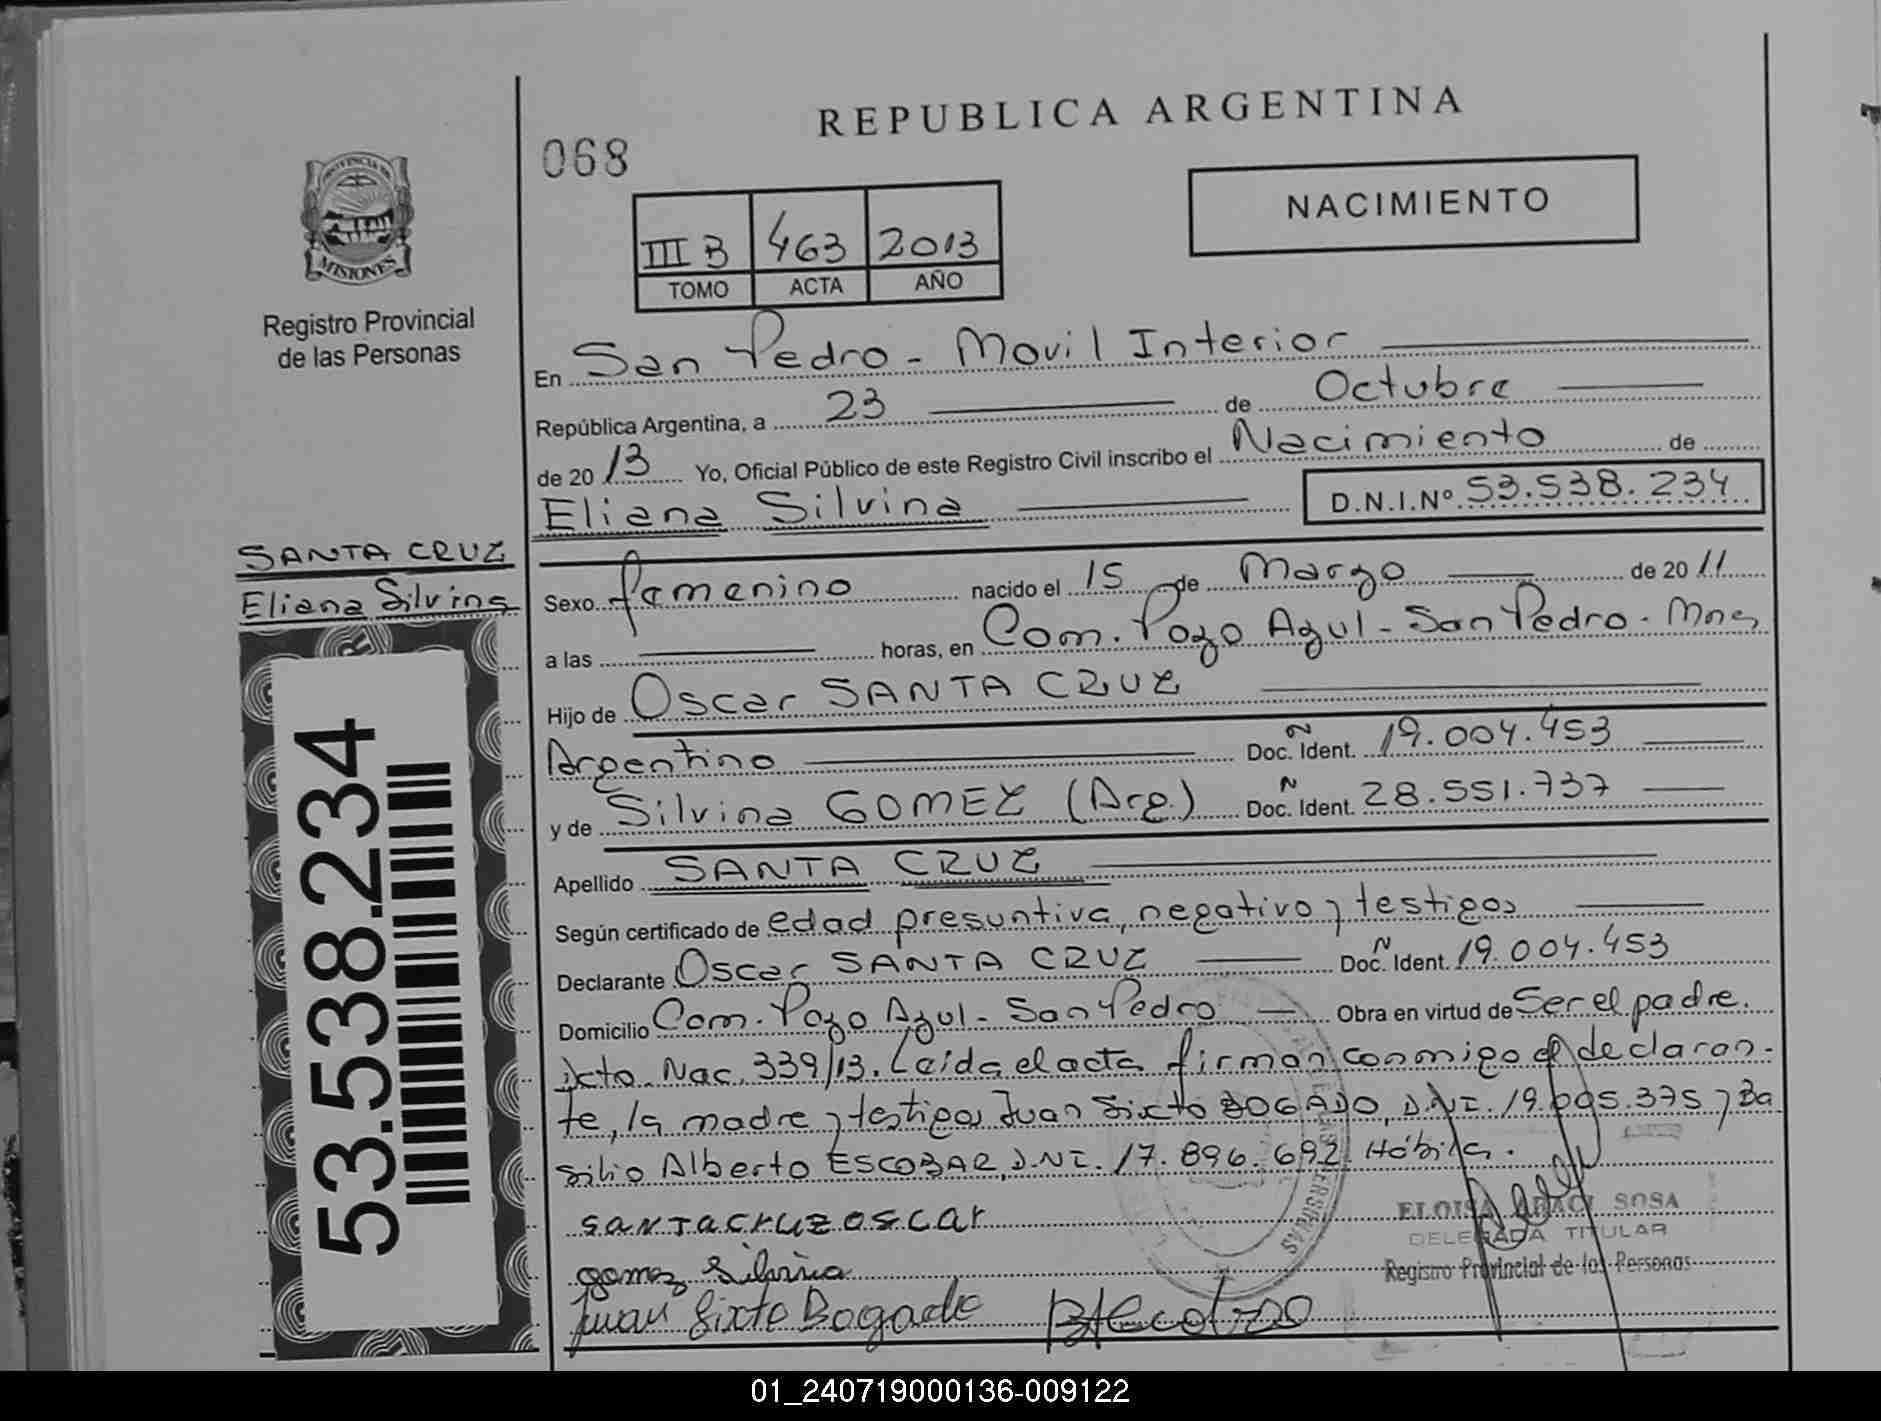 REPUBLICA ARGENTINA
068
NACIMIENTO
III B 463 2013
TOMO ACTA AÑO
PROVINCIA DE
MISIONES
Registro Provincial
de las Personas
En San Pedro - Movil Interior
República Argentina, a 23 de Octubre
de 2013 Yo, Oficial Público de este Registro Civil inscribo el Nacimiento de
Eliana Silvina D.N.I.Nº 53.538.234
SANTA CRUZ
Eliana Silvina
53.538.234
Sexo femenino nacido el 15 de Marzo de 2011
a las horas, en Com. Pozo Azul - San Pedro - Mnes
Hijo de Oscar SANTA CRUZ
Argentino Doc. Ident. 19.004.453
y de Silvina GOMEZ (Arg.) Doc. Ident. 28.551.737
Apellido SANTA CRUZ
Según certificado de edad presuntiva, negativo y testigos
Declarante Oscar SANTA CRUZ Doc. Ident. 19.004.453
Domicilio Com. Pozo Azul - San Pedro Obra en virtud de Ser el padre.
Nac. 339/13. Leida el acta firman conmigo el declaran-
te, la madre y testigos Juan Sixto BOGADO, D.N.I. 19.095.375 y Ba
silio Alberto ESCOBAR, D.NI. 17.896.692 Hábiles.
santacruz oscar
gomez Silvina
Juan Sixto Bogado
ELOISA ARACI SOSA
DELEGADA TITULAR
Registro Provincial de las Personas
01_240719000136-009122